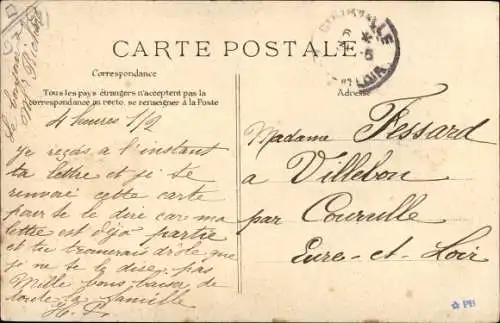 CARTE POSTALE
Correspondance
Tous les pays étrangers n'acceptent pas la
correspondance au recto, se renseigner à la Poste
Adresse
4 heures 1/2
je reçois à l'instant
ta lettre et je te
renvoie cette carte
pour te le dire car ma
lettre est déjà partie
et tu trouverais drôle que
je ne te le dise pas
Mille bons baisers de
toute la famille
Madame Fessard
a Villebon
par Courville
Eure-et-Loir
PB